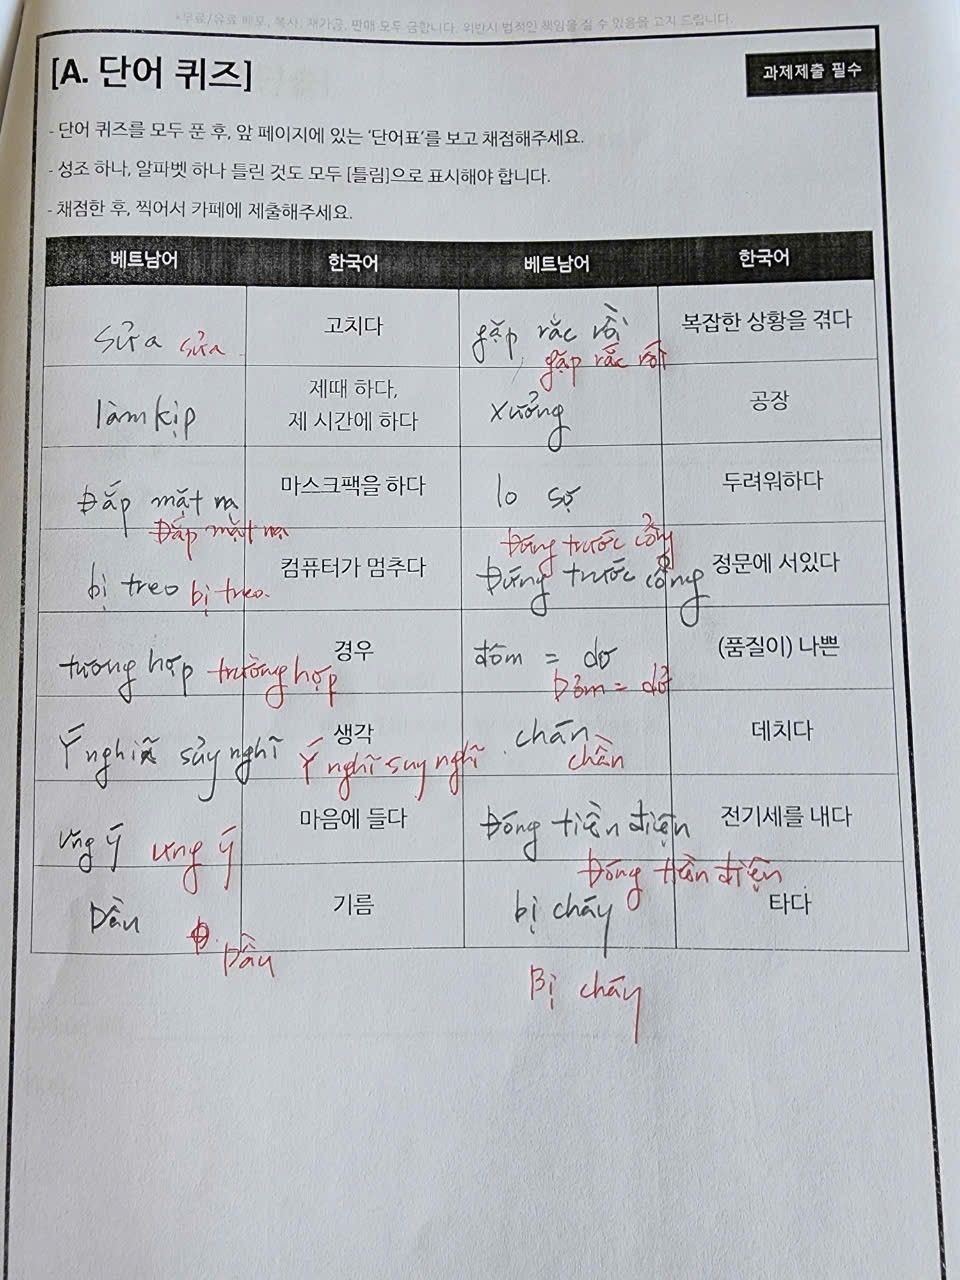 *무료/유료 배포, 복사, 재가공, 판매 모두 금합니다. 위반시 법적인 책임을 질 수 있음을 고지 드립니다.
[A. 단어 퀴즈]
과제제출 필수
- 단어 퀴즈를 모두 푼 후, 앞 페이지에 있는 '단어표'를 보고 채점해주세요.
- 성조 하나, 알파벳 하나 틀린 것도 모두 [틀림]으로 표시해야 합니다.
- 채점한 후, 찍어서 카페에 제출해주세요.
베트남어 한국어 베트남어 한국어
sửa sửa 고치다 gặp rắc rồi 복잡한 상황을 겪다
gặp rắc rối
làm kịp 제때 하다, xưởng 공장
제 시간에 하다
Đắp mặt nạ 마스크팩을 하다 lo sợ 두려워하다
Đắp mặt nạ Đứng trước cổng
bị treo bị treo. 컴퓨터가 멈추다 Đứng trước cổng 정문에 서있다
tương hợp trường hợp 경우 đôm = dơ (품질이) 나쁜
Dỏm = dở
Ý nghĩ sủy nghĩ 생각 Ý nghĩ suy nghĩ chán 데치다
chần
ưng ý ưng ý 마음에 들다 Đóng tiền điện 전기세를 내다
Đóng tiền điện
Dần 기름 bị cháy 타다
Dầu
Bị cháy